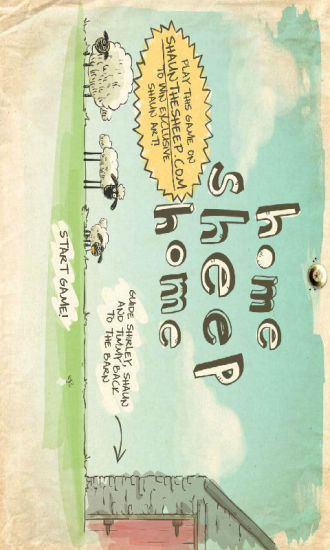 home
sheep
home
PLAY THIS GAME ON
SHAUNTHESHEEP.COM
TO WIN EXCLUSIVE
SHAUN ART!
GUIDE SHIRLEY, SHAUN
AND TIMMY BACK
TO THE BARN
START GAME!